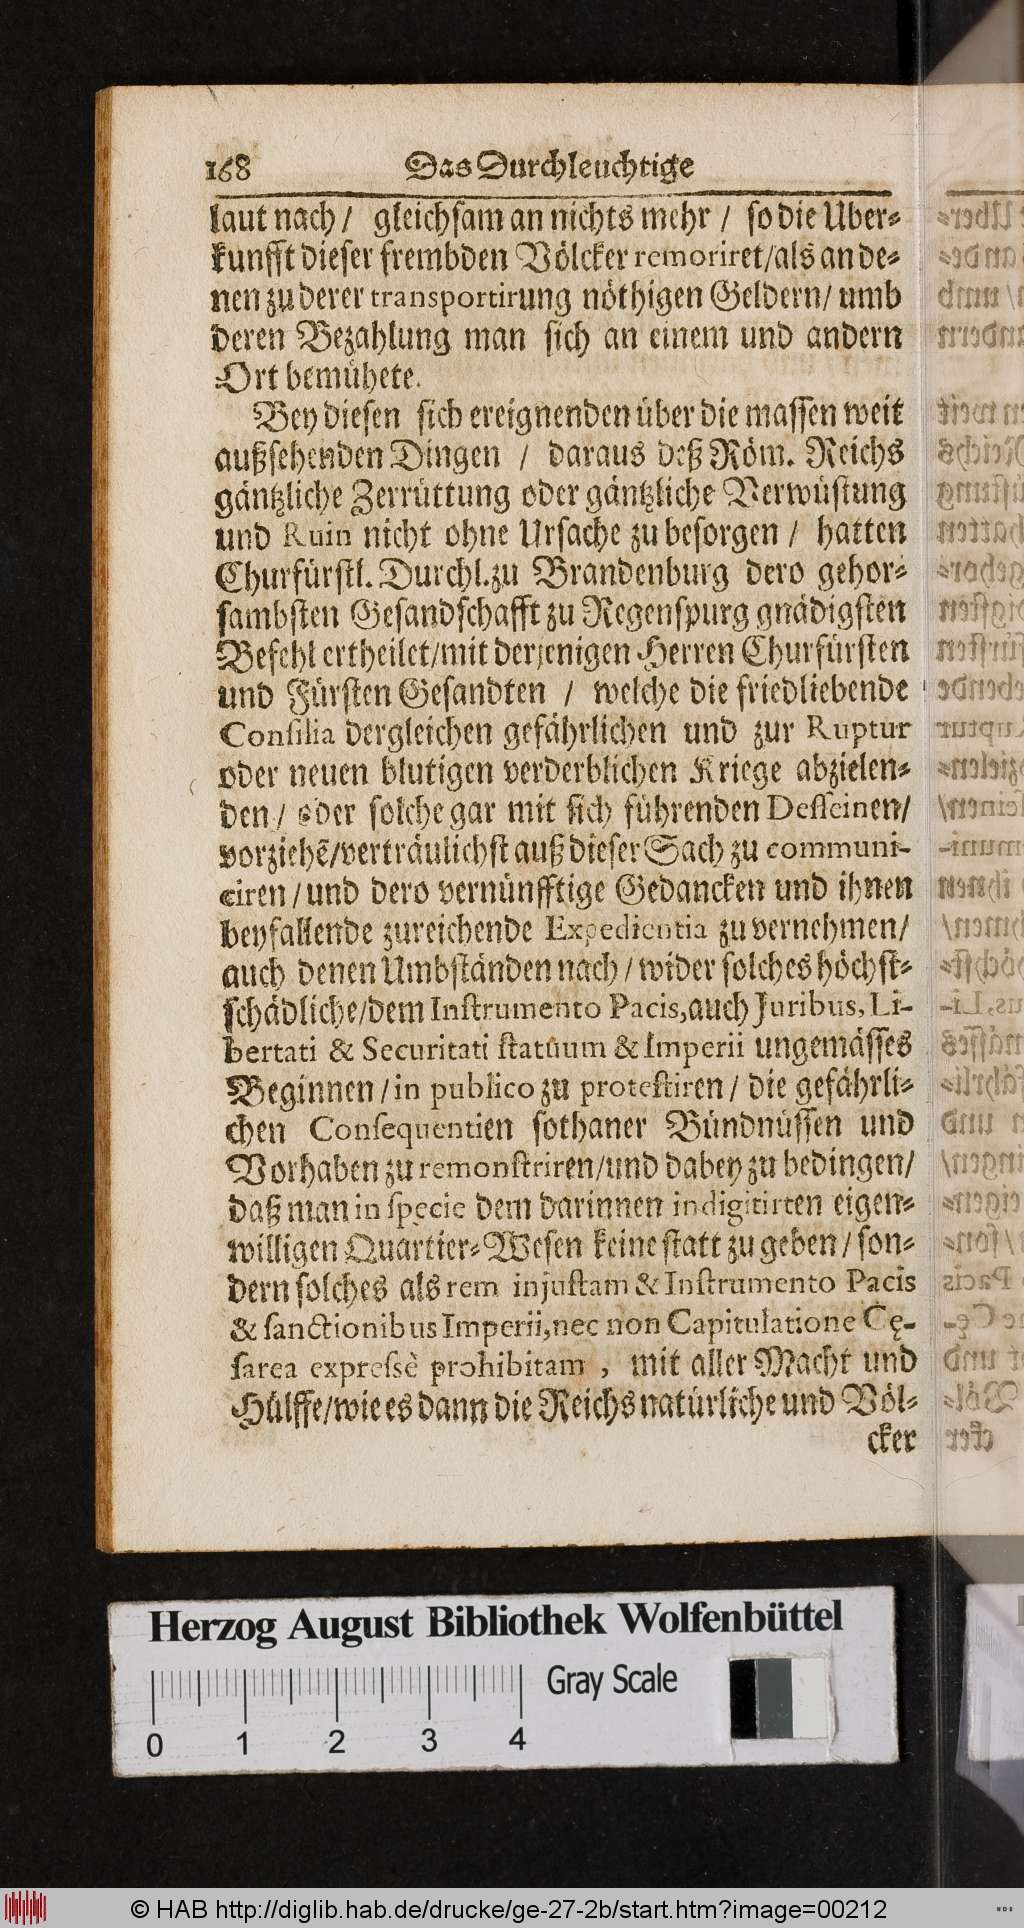 168 Das Durchleuchtige
laut nach / gleichsam an nichts mehr / so die Uber-
kunfft dieser frembden Völcker remoriret/als an de-
nen zu derer transportirung nöthigen Geldern/ umb
deren Bezahlung man sich an einem und andern
Ort bemühete.
Bey diesen sich ereignenden über die massen weit
außsehenden Dingen / daraus deß Röm. Reichs
gäntzliche Zerrüttung oder gäntzliche Verwüstung
und Ruin nicht ohne Ursache zu besorgen / hatten
Churfürstl. Durchl. zu Brandenburg dero gehor-
sambsten Gesandschafft zu Regenspurg gnädigsten
Befehl ertheilet/mit derjenigen Herren Churfürsten
und Fürsten Gesandten / welche die friedliebende
Consilia dergleichen gefährlichen und zur Ruptur
oder neuen blutigen verderblichen Kriege abzielen-
den / oder solche gar mit sich führenden Desseinen/
vorziehē/verträulichst auß dieser Sach zu communi-
ciren / und dero vernünfftige Gedancken und ihnen
beyfallende zureichende Expedientia zu vernehmen/
auch denen Umbständen nach / wider solches höchst-
schädliche/dem Instrumento Pacis, auch Juribus, Li-
bertati & Securitati statuum & Imperii ungemässes
Beginnen / in publico zu protestiren / die gefährli-
chen Consequentien sothaner Bündnüssen und
Vorhaben zu remonstriren/und dabey zu bedingen/
daß man in specie dem darinnen indigitirten eigen-
willigen Quartier-Wesen keine statt zu geben / son-
dern solches als rem injustam & Instrumento Pacis
& sanctionibus Imperii, nec non Capitulatione Cę-
sarea expressè prohibitam , mit aller Macht und
Hülffe/wie es dann die Reichs natürliche und Völ-
cker
Herzog August Bibliothek Wolfenbüttel
Gray Scale
0 1 2 3 4
© HAB http://diglib.hab.de/drucke/ge-27-2b/start.htm?image=00212